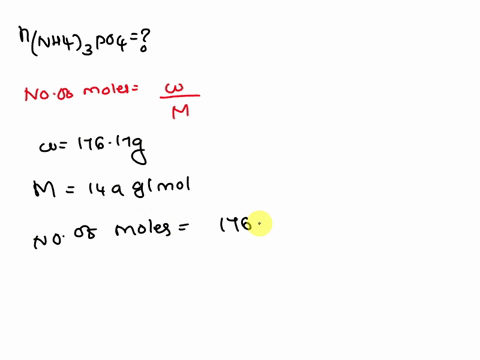 n(NH4)3PO4=?
No. of moles = w/M
w = 176.17g
M = 149 g/mol
No. of moles = 176.